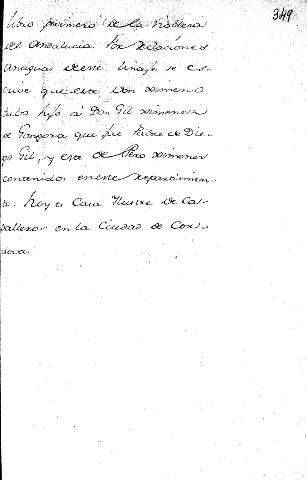 349
libro primero de la Nobleza
del Andalucia. Por Relaciones
antiguas deste linaje se es-
crive que este Don Ximeno
tubo hijo á Don Gil Ximenez
de Gongora que fue Padre de Die-
go Gil, y este de Pero Ximenez
contenidos en este repartimien-
to. hoy es Casa Ilustre de Ca-
valleros en la Ciudad de Cor-
dova.